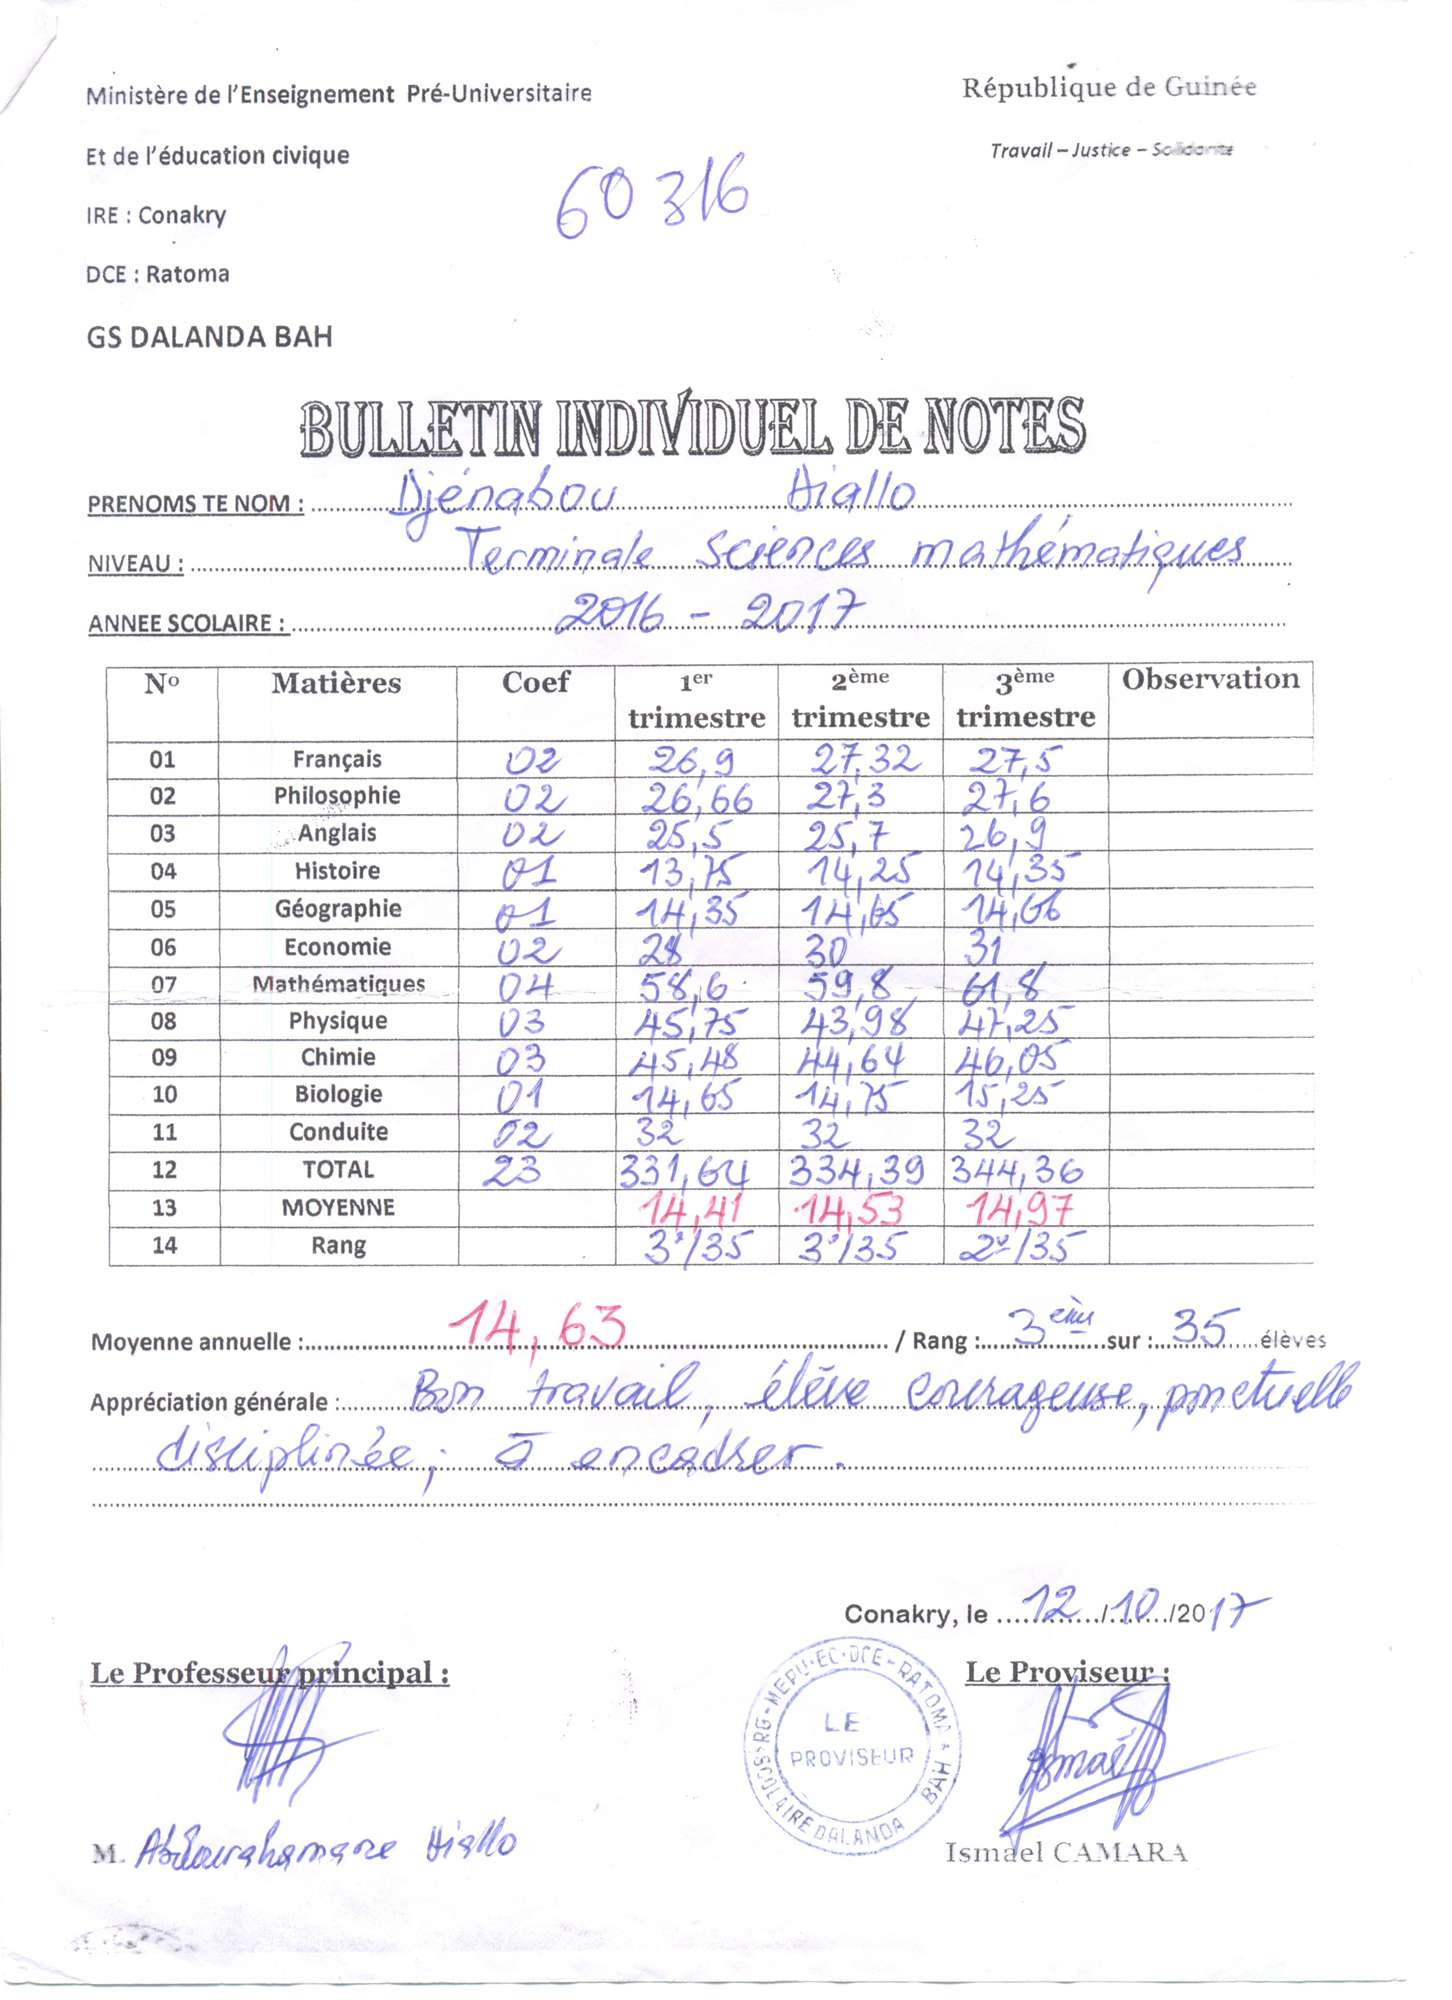 Ministère de l'Enseignement Pré-Universitaire
République de Guinée
Et de l'éducation civique
Travail – Justice – Solidarité
IRE : Conakry
60316
DCE : Ratoma
GS DALANDA BAH
BULLETIN INDIVIDUEL DE NOTES
PRENOMS TE NOM : Djénabou Diallo
NIVEAU : Terminale Sciences mathématiques
ANNEE SCOLAIRE : 2016 - 2017
N° Matières Coef 1er trimestre 2ème trimestre 3ème trimestre Observation
01 Français 02 26,9 27,32 27,5
02 Philosophie 02 26,66 27,3 27,6
03 Anglais 02 25,5 25,7 26,9
04 Histoire 01 13,75 14,25 14,35
05 Géographie 01 14,35 14,65 14,66
06 Economie 02 28 30 31
07 Mathématiques 04 58,6 59,8 61,8
08 Physique 03 45,75 43,98 47,25
09 Chimie 03 45,48 44,64 46,05
10 Biologie 01 14,65 14,75 15,25
11 Conduite 02 32 32 32
12 TOTAL 23 331,64 334,39 344,36
13 MOYENNE 14,41 14,53 14,97
14 Rang 3e/35 3e/35 2e/35
Moyenne annuelle : 14,63 / Rang : 3ème sur : 35 élèves
Appréciation générale : Bon travail, élève courageuse, ponctuelle
disciplinée, à encadrer.
Conakry, le 12/10/2017
Le Professeur principal :
Le Proviseur :
RG-MEPU-EC-DCE-RATOMA
LE
PROVISEUR
SCOLAIRE DALANDA BAH
Ismaël
M. Abdourahamane Diallo
Ismael CAMARA